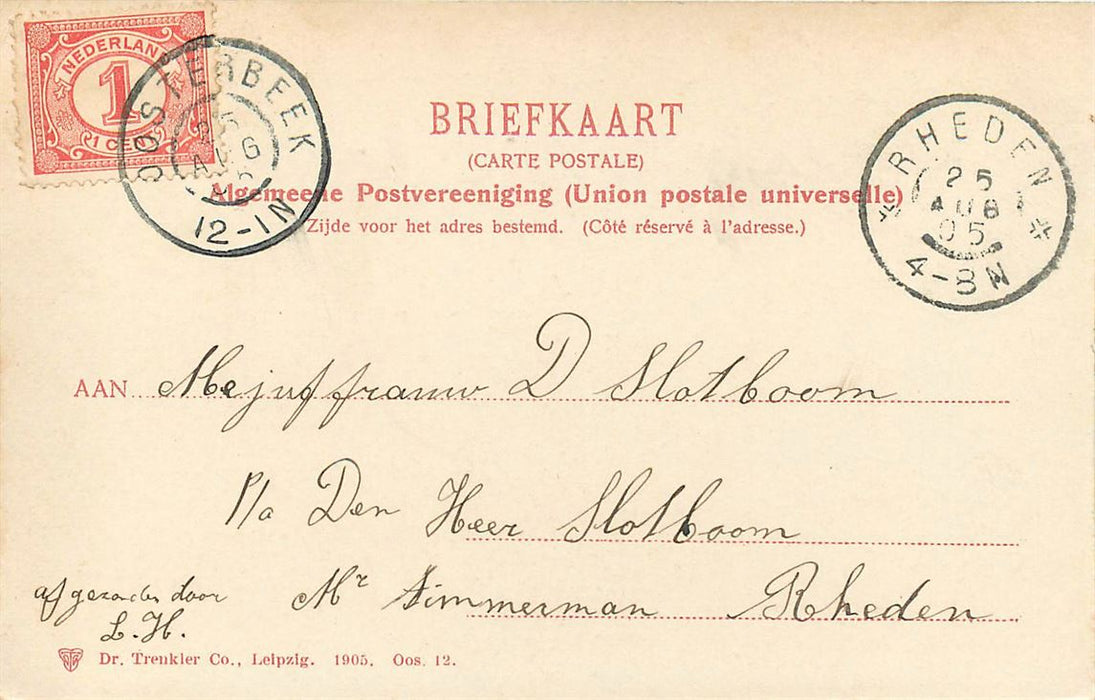 NEDERLAND
1
1 CENT
OOSTERBEEK
25
AUG
12-1N
BRIEFKAART
(CARTE POSTALE)
Algemeene Postvereeniging (Union postale universelle)
Zijde voor het adres bestemd. (Côté réservé à l'adresse.)
RHEDEN
25
AUG
05
4-8N
AAN Mejuffrauw D Slotboom
P/a Den Heer Slotboom
Mr Timmerman Rheden
afgezonden door
L. H.
Dr. Trenkler Co., Leipzig. 1905. Oos. 12.